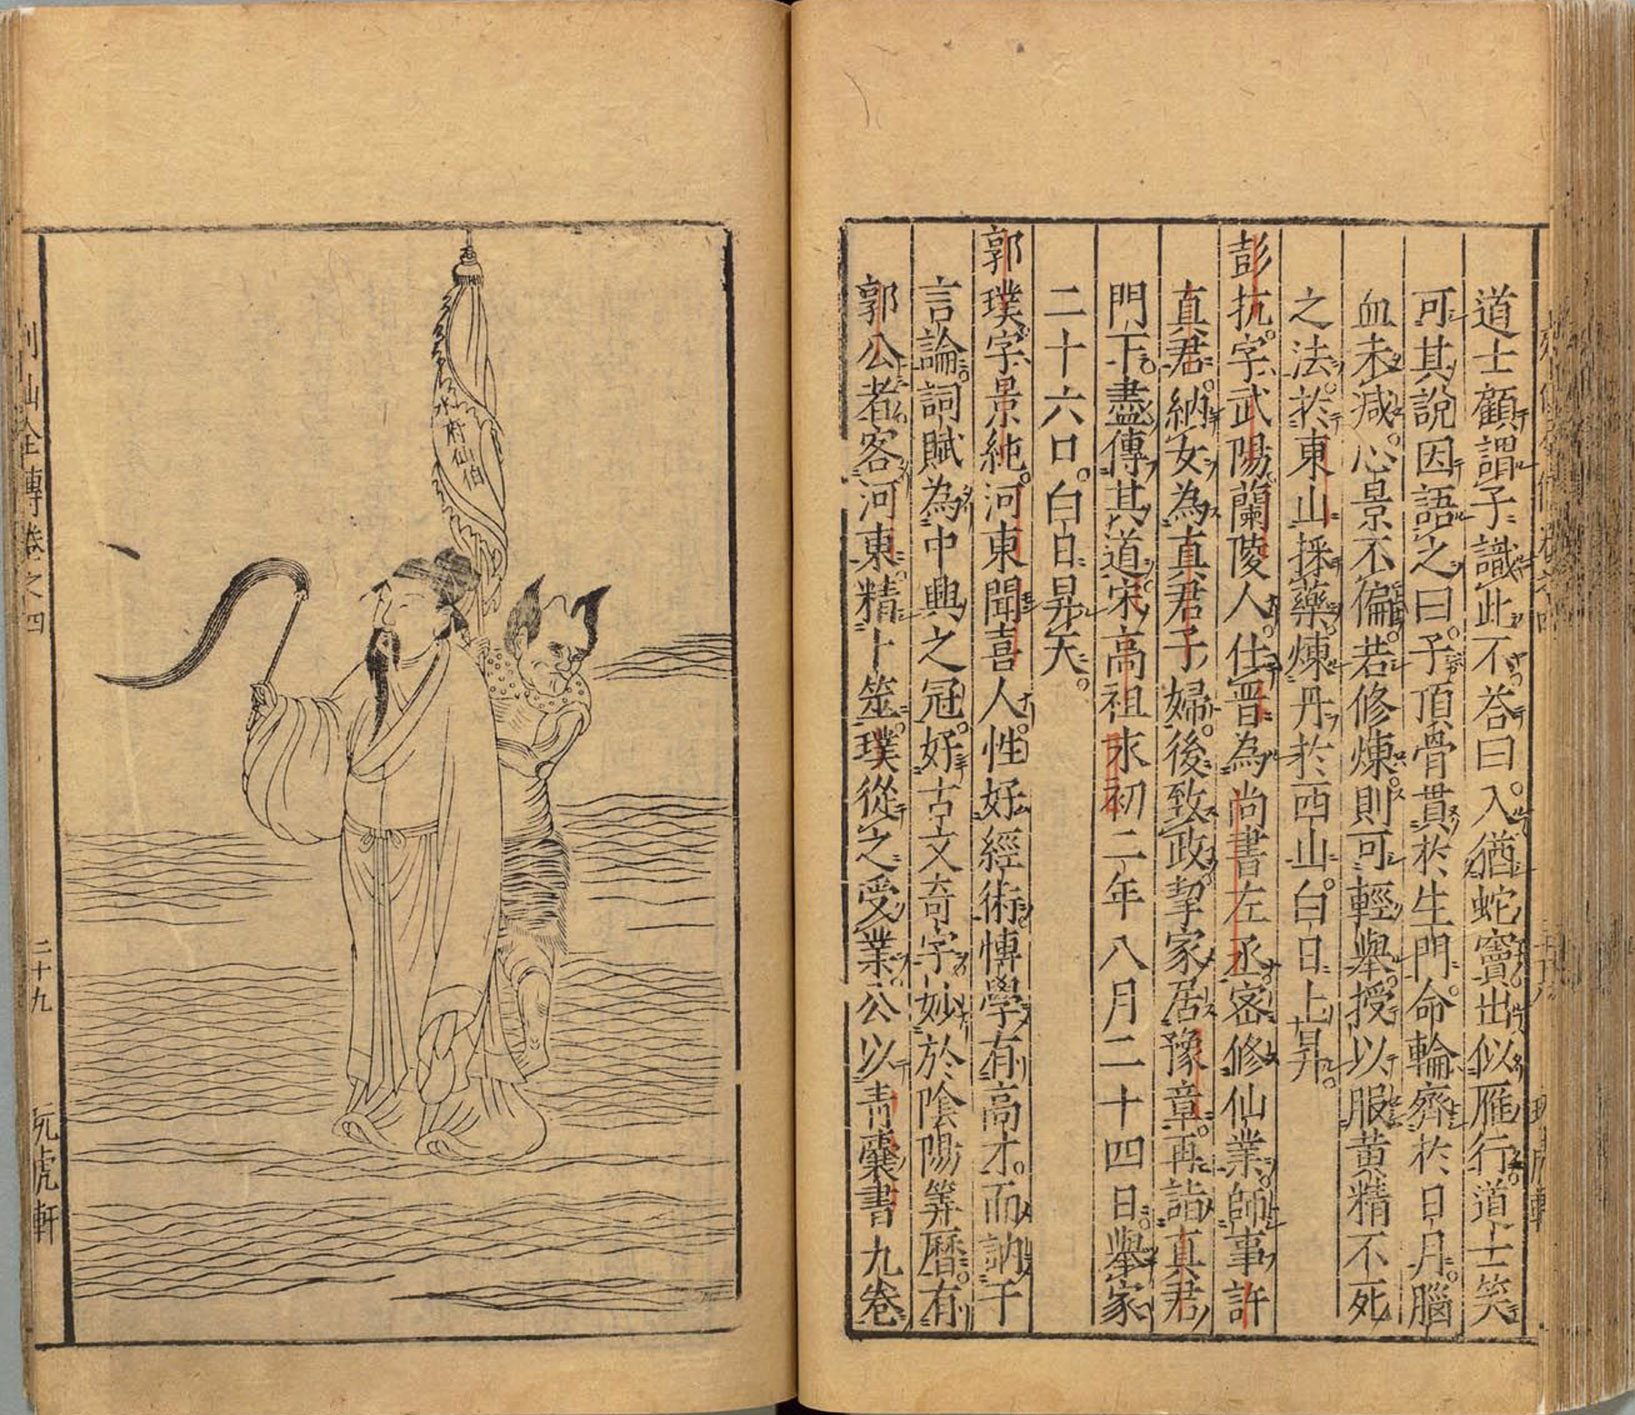 道士顧謂子識此不答曰。入猶蛇竇。出似雁行。道士笑
可其說因語之曰。予頂骨貫於生門。命輪齊於日月。腦
血未減。心景不偏。若修煉。則可輕舉。授以服黃精不死
之法。於東山採藥。煉丹於西山。白日上昇。
彭抗。字武陽。蘭陵人。仕晉為尚書左丞。密修仙業。師事許
真君。納女為真君子婦。後致政。挈家居豫章。再詣真君
門下。盡傳其道。宋高祖永初二年八月二十四日。舉家
二十六口。白日昇天。
郭璞。字景純。河東聞喜人。性好經術。博學有高才。而訥于
言論。詞賦為中興之冠。好古文奇字。妙於陰陽筭曆。有
郭公者。客河東。精卜筮。璞從之受業。公以青囊書九卷
水府仙伯
列仙全傳卷之四
二十九
玩虎軒